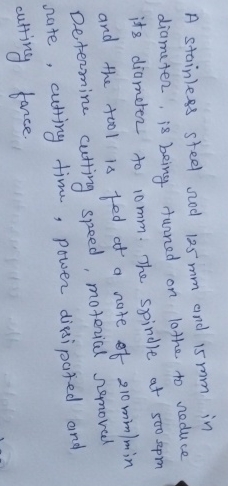 A stainless steel rod 125 mm and 15 mm in
diameter, is being turned on lathe to reduce
its diameter to 10 mm. The spindle at 500 rpm
and the tool is fed at a rate of 210 mm/min
Determine cutting speed, material removed
rate, cutting time, power dissipated and
cutting force